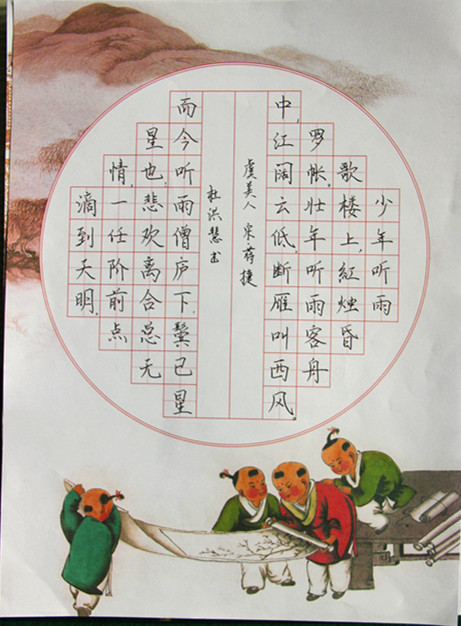 少年听雨
歌楼上,紅烛昏
罗帐,壮年听雨客舟
中,江阔云低,断雁叫西风。
虞美人 宋·蒋捷
杜洪慧书
而今听雨僧庐下,鬓已星
星也,悲欢离合总无
情,一任阶前点
滴到天明。